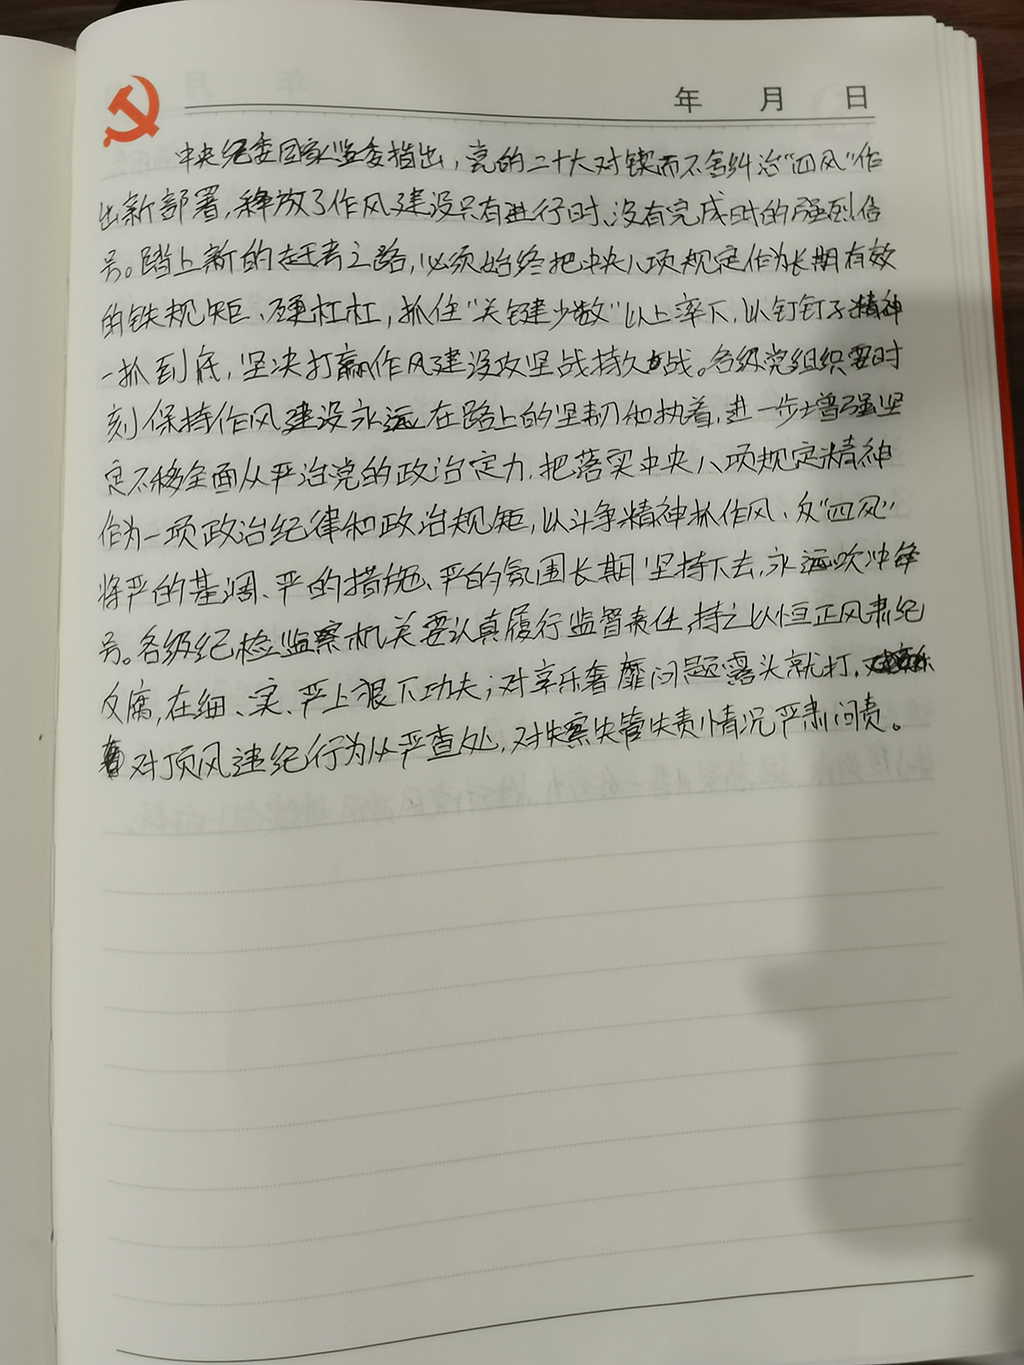 年 月 日
中央纪委国家监委指出，党的二十大对锲而不舍纠治“四风”作
出新部署，释放了作风建设只有进行时、没有完成时的强烈信
号。踏上新的赶考之路，必须始终把中央八项规定作为长期有效
的铁规矩、硬杠杠，抓住“关键少数”以上率下，以钉钉子精神
一抓到底，坚决打赢作风建设攻坚战持久战。各级党组织要时
刻保持作风建设永远在路上的坚韧和执着，进一步增强坚
定不移全面从严治党的政治定力，把落实中央八项规定精神
作为一项政治纪律和政治规矩，以斗争精神抓作风、反“四风”，
将严的基调、严的措施、严的氛围长期坚持下去，永远吹冲锋
号。各级纪检监察机关要认真履行监督责任，持之以恒正风肃纪
反腐，在细、实、严上狠下功夫；对享乐奢靡问题露头就打，
对顶风违纪行为从严查处，对失察失管失责情况严肃问责。